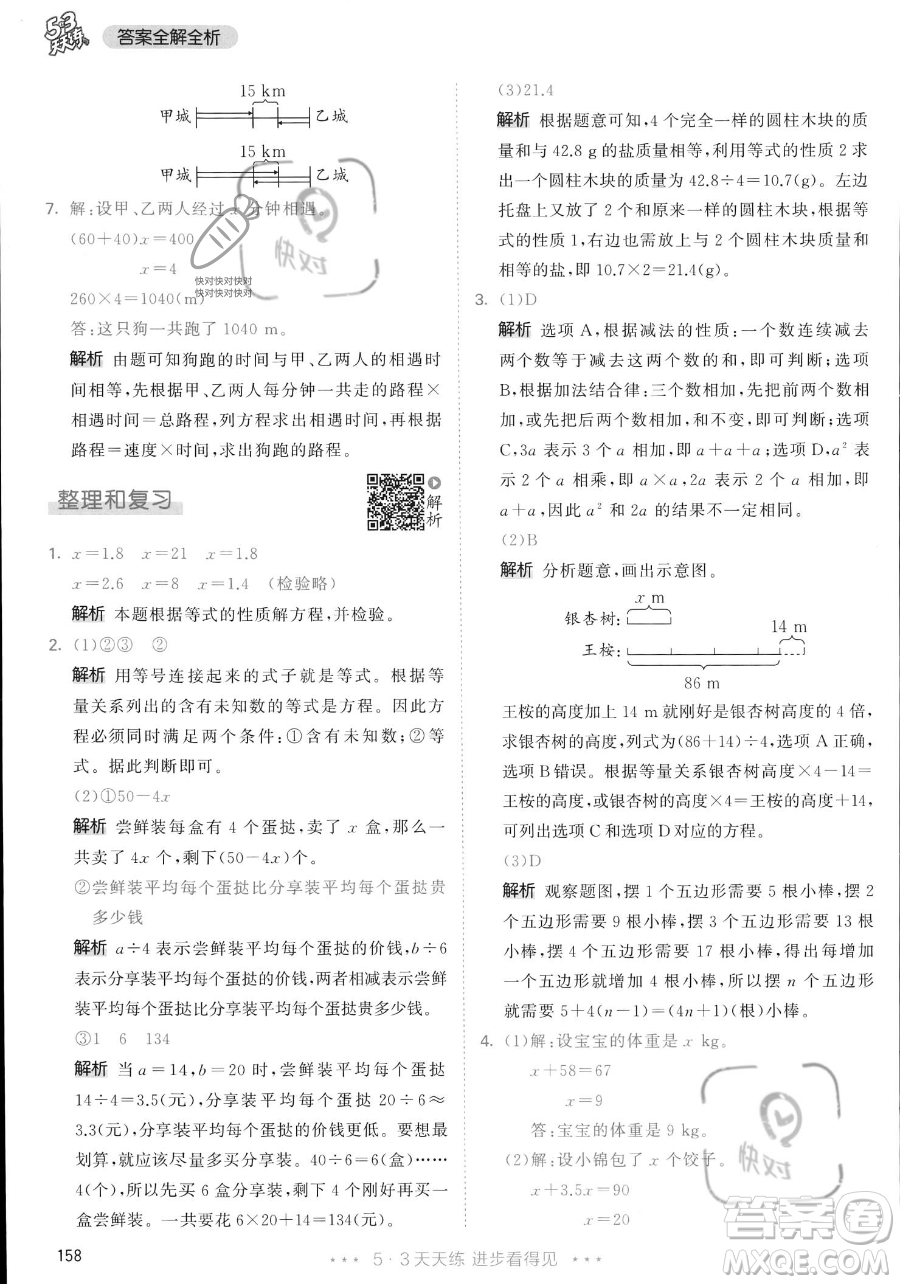 5·3
天天练
答案全解全析
15 km
甲城 乙城
15 km
甲城 乙城
7. 解:设甲、乙两人经过 x 分钟相遇。
(60+40)x=400
x=4
260×4=1040(m)
答:这只狗一共跑了 1040 m。
解析 由题可知狗跑的时间与甲、乙两人的相遇时
间相等,先根据甲、乙两人每分钟一共走的路程×
相遇时间=总路程,列方程求出相遇时间,再根据
路程=速度×时间,求出狗跑的路程。
快对
快对快对快对
快对快对快对
整理和复习
解析
1. x=1.8 x=21 x=1.8
x=2.6 x=8 x=1.4 (检验略)
解析 本题根据等式的性质解方程,并检验。
2. (1)②③ ②
解析 用等号连接起来的式子就是等式。根据等
量关系列出的含有未知数的等式是方程。
方程必须同时满足两个条件:①含有未知数;②等
式。据此判断即可。
(2)①50-4x
解析 尝鲜装每盒有 4 个蛋挞,卖了 x 盒,那么一
共卖了 4x 个,剩下(50-4x)个。
②尝鲜装平均每个蛋挞比分享装平均每个蛋挞贵
多少钱
解析 a÷4 表示尝鲜装平均每个蛋挞的价钱,b÷6
表示分享装平均每个蛋挞的价钱,两者相减表示尝
鲜装平均每个蛋挞比分享装平均每个蛋挞贵多少钱。
③1 6 134
解析 当 a=14,b=20 时,尝鲜装平均每个蛋挞
14÷4=3.5(元),分享装平均每个蛋挞 20÷6≈
3.3(元),分享装平均每个蛋挞的价钱更低。要想最
划算,就应该尽量多买分享装。40÷6=6(盒)……
4(个),所以买 6 盒分享装后,还剩下 4 个,正好可以
买一盒尝鲜装。一共要花 6×20+14=134(元)。
(3)21.4
解析 根据题意可知,4 个完全一样的圆柱木块的质
量和与 42.8 g 的盐质量相等,利用等式的性质 2 求
出一个圆柱木块的质量为 42.8÷4=10.7(g)。左边
托盘上又放了 2 个和原来一样的圆柱木块,根据等
式的性质 1,右边也需要放与 2 个圆柱木块质量和
相等的盐,即 10.7×2=21.4(g)。
3. (1)D
解析 选项 A,根据减法的性质:一个数连续减去
两个数等于减去这两个数的和,即可判断;选项
B,根据加法结合律:三个数相加,先把前两个数相
加,或先把后两个数相加,和不变,即可判断;选项
C,3a 表示 3 个 a 相加,即 a+a+a;选项D,a² 表
示 2 个 a 相乘,即 a×a,2a 表示 2 个 a 相加,即
a+a,因此 a² 和 2a 的意义不同。
(2)B
解析 分析题意,画出示意图。
x m
银杏树:
14 m
王桉:
86 m
王桉的高度加上 14 m就刚好是银杏树高度的 4 倍,
求银杏树的高度,列式为(86+14)÷4,选项 A 正确,
选项 B错误。根据等量关系银杏树的高度×4-14=
王桉的高度,银杏树的高度×4=王桉的高度+14,
可列出选项 C 和选项 D对应的方程。
(3)D
解析 观察题图,摆 1 个五边形需要 5 根小棒,摆 2
个五边形需要 9 根小棒,摆 3 个五边形需要 13 根
小棒,摆 4 个五边形需要 17 根小棒,每增加一个五
边形就增加 4 根小棒,所以摆 n 个五边形
需要 5+4(n-1)=(4n+1)(根)小棒。
4. (1)解:设宝宝的体重是 x kg。
x+58=67
x=9
答:宝宝的体重是 9 kg。
(2)解:设小锦包了 x 个饺子。
x+3.5x=90
x=20
快对
158
5·3天天练 进步看得见
答案圈
MXQE.COM